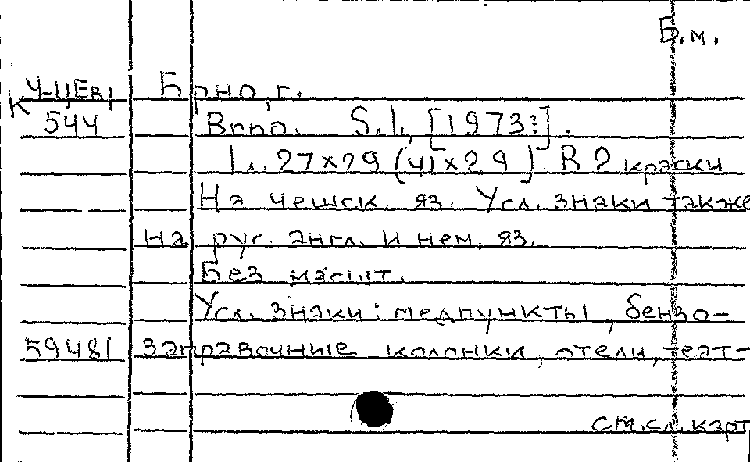 Б.м.
Ч-ЦЕв, Брно, г.
К
544 Brno. S.l., [1973?].
1 л. 27х29 (41х29) В 2 краски
На чешск. яз. Усл. знаки также
на рус. англ. и нем. яз.
Без масшт.
Усл. знаки: медпункты, бензо-
59481 заправочные колонки, отели, теат-
см.сл.карт